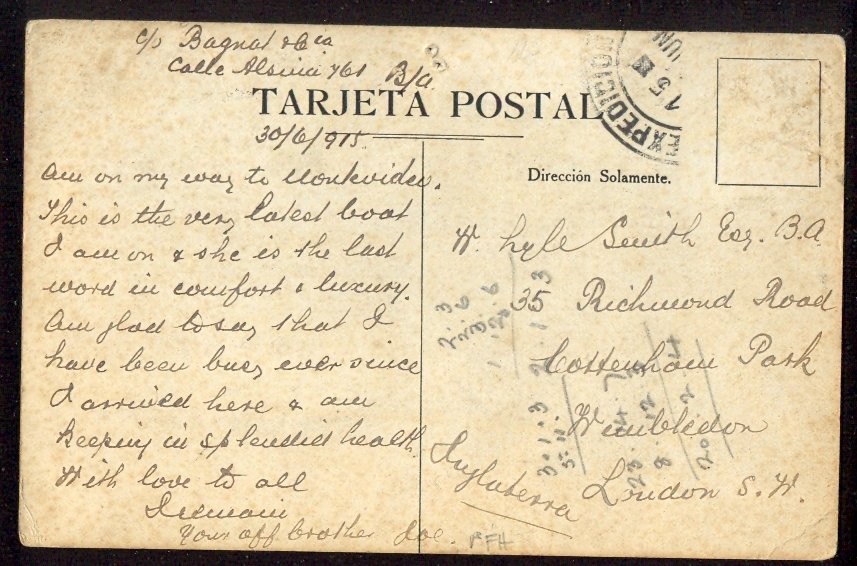 c/o Bagnat & Cia
Calle Alsina 761 B/A.
TARJETA POSTAL
30/6/915.
EXPEDICION
15
JUN
Dirección Solamente.
Am on my way to Montevideo.
This is the very latest boat
I am on & she is the last
word in comfort & luxury.
Am glad to say that I
have been busy ever since
I arrived here & am
keeping in splendid health.
With love to all
I remain
Your aff brother Joe.
W. Lyle Smith Esq. B.A.
35 Richmond Road
Cottenham Park
Wimbledon
London S.W.
Inglaterra